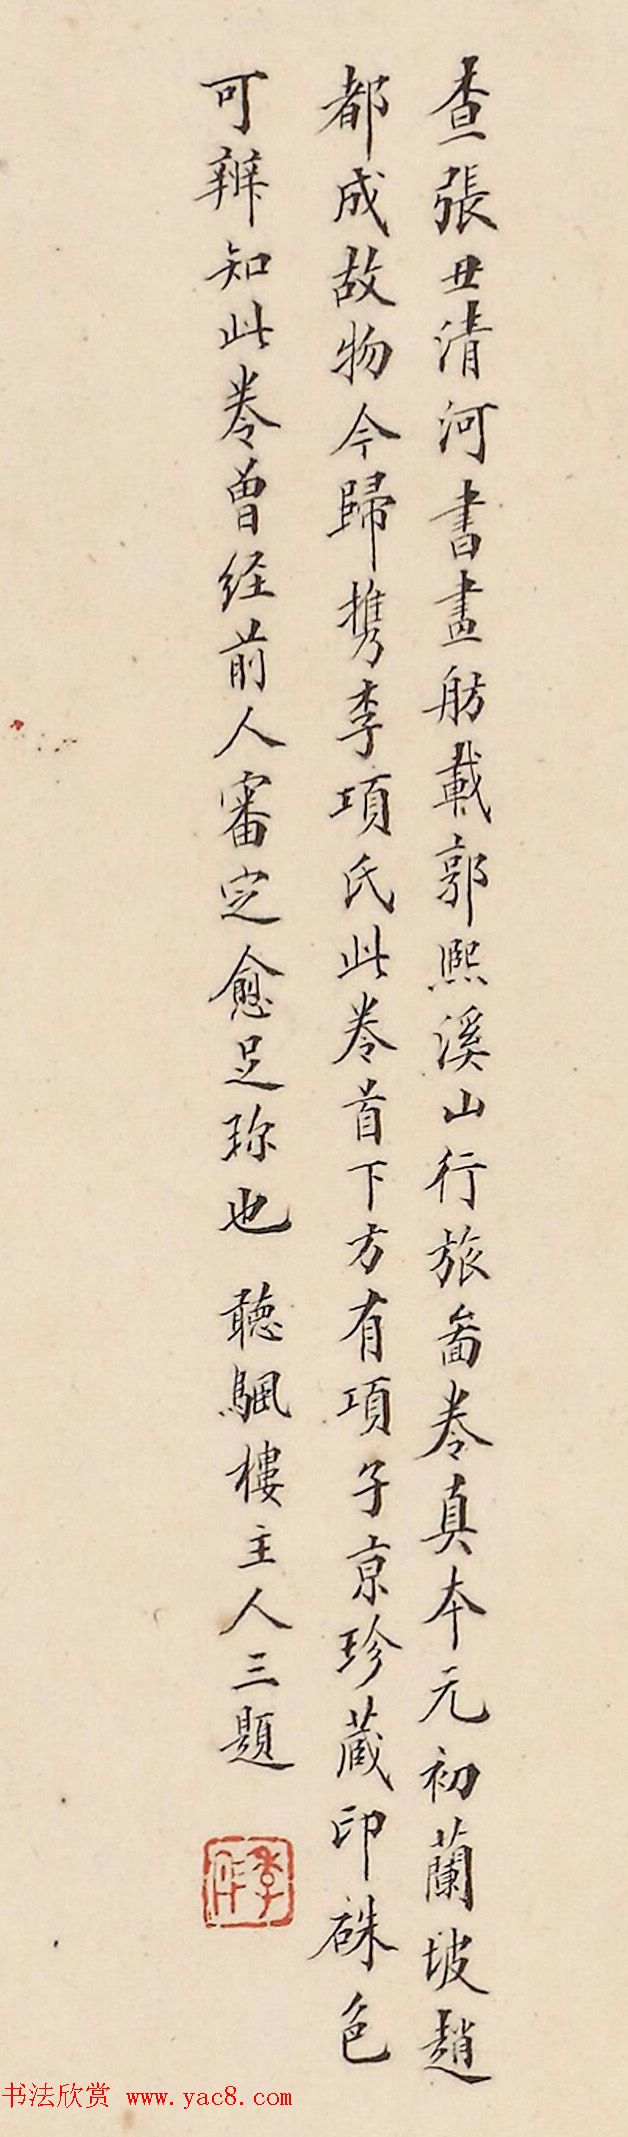 查張丑清河書畫舫載郭熙溪山行旅啚卷真本元初蘭坡趙
都成故物今歸携李項氏此卷首下方有項子京珍蔵印硃色
可辨知此卷曾经前人審定愈足珎也 聴颿樓主人三題
季彤
书法欣赏 www.yac8.com